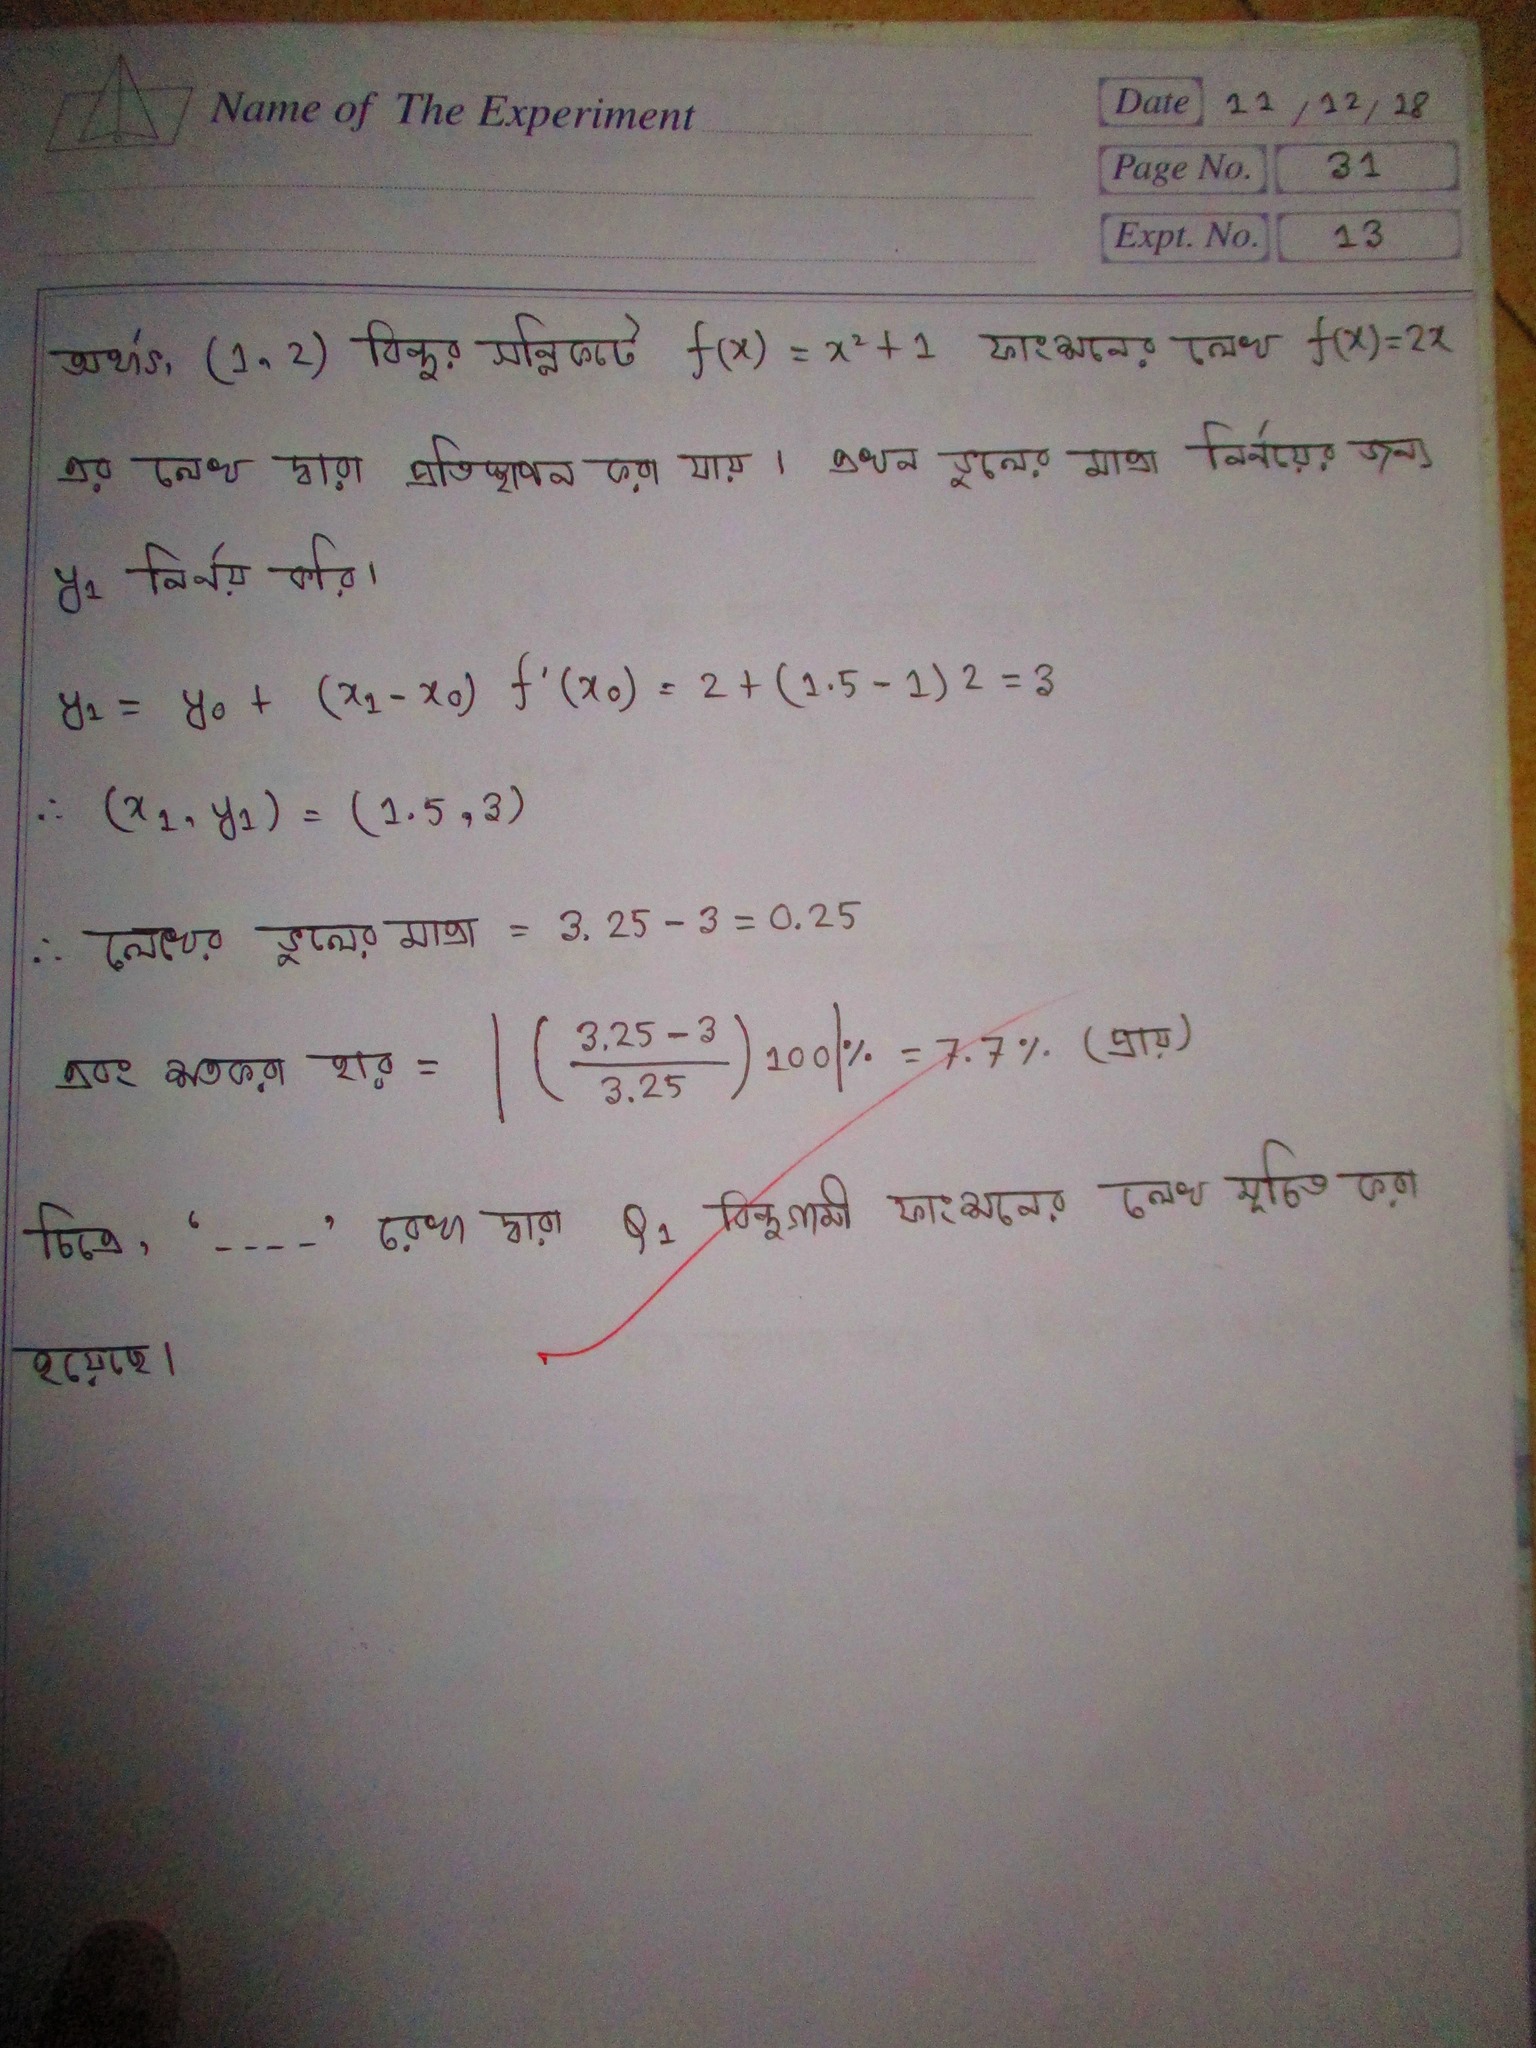 Name of The Experiment
Date 11/12/18
Page No. 31
Expt. No. 13
অর্থাৎ, (1, 2) বিন্দুর সন্নিকটে f(x) = x²+1 ফাংশনের লেখ f(x)=2x
এর লেখ দ্বারা প্রতিস্থাপন করা যায়। এখন ভুলের মাত্রা নির্ণয়ের জন্য
y₁ নির্ণয় করি।
y₁ = y₀ + (x₁-x₀) f'(x₀) = 2+(1.5-1)2 = 3
∴ (x₁, y₁) = (1.5, 3)
∴ লেখের ভুলের মাত্রা = 3.25 - 3 = 0.25
এবং শতকরা হার = |((3.25-3)/3.25)100|% = 7.7% (প্রায়)
চিত্রে, '----' রেখা দ্বারা Q₁ বিন্দুগামী ফাংশনের লেখ সূচিত করা
হয়েছে।